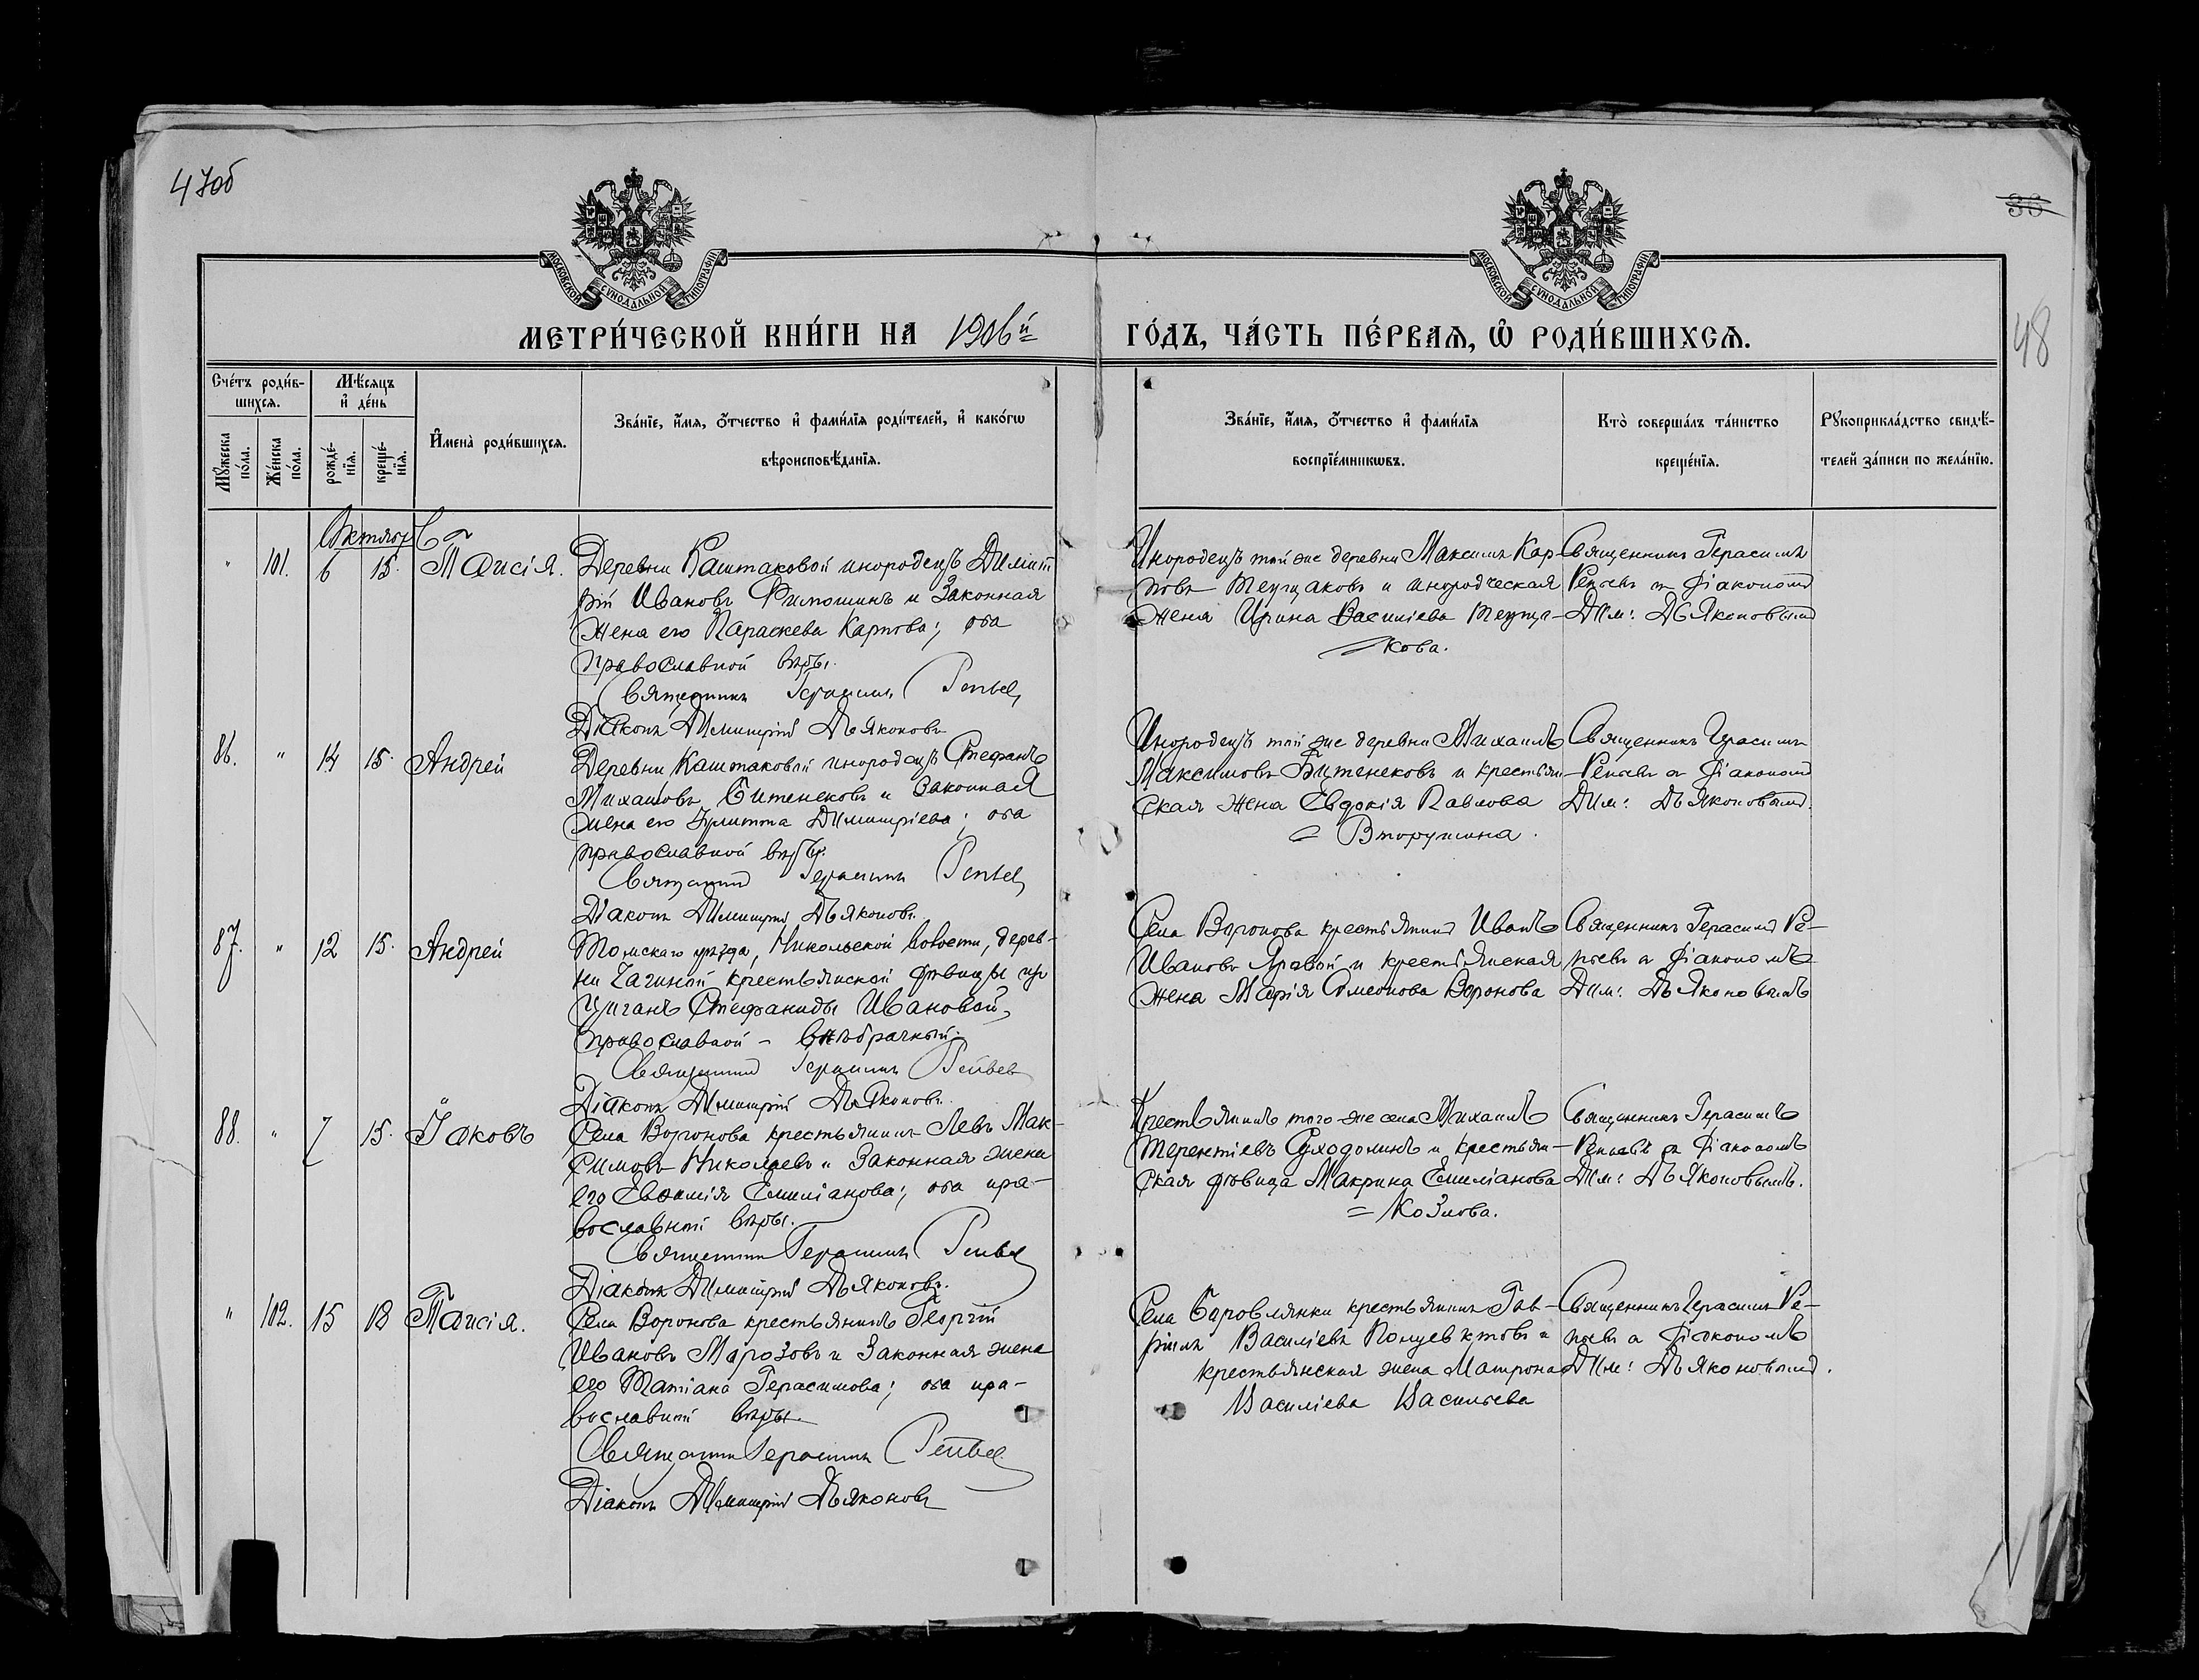 47об
36
48
МОСКОВСКОЙ СѴНОДАЛЬНОЙ ТИПОГРАФІИ
МОСКОВСКОЙ СѴНОДАЛЬНОЙ ТИПОГРАФІИ
МЕТРИ́ЧЕСКОЙ КНИ́ГИ НА 1906й ГО́ДЪ, ЧА́СТЬ ПЕ́РВАЯ, Ѡ҆ РОДИ́ВШИХСѦ.
Сче́тъ роди́в-
шихсѧ.
Мѣ́сяцъ
и҆ де́нь
Мꙋ́жеска
по́ла.
Же́нска
по́ла.
рожде́-
нїѧ.
креще́-
нїѧ.
И҆мена̀ роди́вшихсѧ.
Зва́нїе, и҆́мѧ, ѻ҆́тчество и҆ фами́лїѧ роди́телей, и҆ како́гѡ
вѣроисповѣ́данїѧ.
Зва́нїе, и҆́мѧ, ѻ҆́тчество и҆ фами́лїѧ
воспрїе́мникѡвъ.
Кто̀ соверша́лъ та́инство
креще́нїѧ.
Рꙋкоприкла́дство свидѣ́-
телей за́писи по жела́нїю.
Октябрь
" 101. 6 15. Таисія.
Деревни Каштаковой инородецъ Димит
рій Ивановъ Филюшинъ и законная
жена его Параскева Карпова; оба
православной вѣры.
Священникъ Герасимъ Репьев
Діаконъ Димитрій Дьяконовъ
Инородецъ той же деревни Максимъ Кар-
повъ Теущаковъ и инородческая
жена Ирина Василіева Теуща-
кова.
Священникъ Герасимъ
Репьевъ съ діакономъ
Дим: Дьяконовымъ
86. " 14 15. Андрей
Деревни Каштаковой инородецъ Стефанъ
Михайловъ Битенековъ и законная
жена его Іулитта Димитріева; оба
православной вѣры.
Священникъ Герасимъ Репьев
Діаконъ Димитрій Дьяконовъ.
Инородецъ той же деревни Михаилъ
Максимовъ Битенековъ и крестьян-
ская жена Евдокія Павлова
= Вторушина.
Священникъ Герасимъ
Репьевъ съ діакономъ
Дим: Дьяконовымъ.
87. " 12 15. Андрей
Томскаго уѣзда, Никольской волости, дерев-
ни Чагиной крестьянской дѣвицы из
цыганъ Стефаниды Ивановой,
православной - внѣбрачный.
Священникъ Герасимъ Репьев
Діаконъ Димитрій Дьяконовъ.
Села Воронова крестьянинъ Иванъ
Ивановъ Яровой и крестьянская
жена Марія Симеонова Воронова
Священникъ Герасимъ Ре-
пьевъ съ діакономъ
Дим: Дьяконовымъ
88. " 7 15. Іаковъ
Села Воронова крестьянинъ Левъ Мак-
симовъ Николаевъ и законная жена
его Евѳимія Емиліанова; оба пра-
вославной вѣры.
Священникъ Герасимъ Репьев
Діаконъ Димитрій Дьяконовъ.
Крестьянинъ того же села Михаилъ
Терентіевъ Суходолинъ и крестьян-
ская дѣвица Макрина Емиліанова
= Козлова.
Священникъ Герасимъ
Репьевъ съ діакономъ
Дим: Дьяконовымъ.
" 102. 15 18 Таисія.
Села Воронова крестьянинъ Георгій
Ивановъ Марозовъ и законная жена
его Татіана Герасимова; оба пра-
вославной вѣры.
Священникъ Герасимъ Репьев
Діаконъ Димитрій Дьяконовъ
Села Боровлянки крестьянинъ Гав-
ріилъ Василіевъ и
крестьянская жена Матрона
Василіева Васильева
Священникъ Герасимъ Ре-
пьевъ съ діакономъ
Дим: Дьяконовымъ.